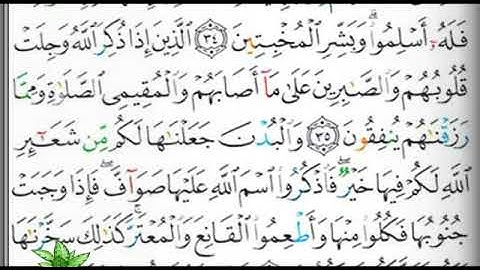 فَلَهُۥٓ أَسْلِمُوا۟ ۗ وَبَشِّرِ ٱلْمُخْبِتِينَ ﴿٣٤﴾ ٱلَّذِينَ إِذَا ذُكِرَ ٱللَّهُ وَجِلَتْ
قُلُوبُهُمْ وَٱلصَّـٰبِرِينَ عَلَىٰ مَآ أَصَابَهُمْ وَٱلْمُقِيمِى ٱلصَّلَوٰةِ وَمِمَّا
رَزَقْنَـٰهُمْ يُنفِقُونَ ﴿٣٥﴾ وَٱلْبُدْنَ جَعَلْنَـٰهَا لَكُم مِّن شَعَـٰٓئِرِ
ٱللَّهِ لَكُمْ فِيهَا خَيْرٌ ۖ فَٱذْكُرُوا۟ ٱسْمَ ٱللَّهِ عَلَيْهَا صَوَآفَّ ۖ فَإِذَا وَجَبَتْ
جُنُوبُهَا فَكُلُوا۟ مِنْهَا وَأَطْعِمُوا۟ ٱلْقَانِعَ وَٱلْمُعْتَرَّ ۚ كَذَٰلِكَ سَخَّرْنَـٰهَا